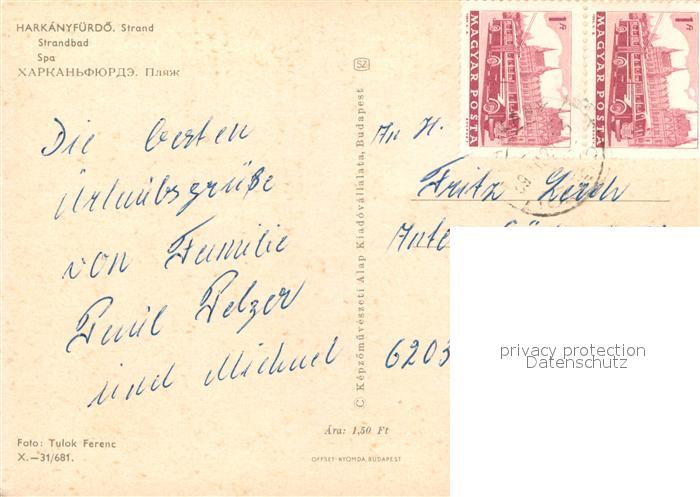 HARKÁNYFÜRDŐ. Strand
Strandbad
Spa
ХАРКАНЬФЮРДЭ. Пляж
Die besten
Urlaubsgrüße
von Familie
Emil Pelzer
und Michael
Foto: Tulok Ferenc
X.—31/681.
SZ
C Képzőművészeti Alap Kiadóvállalata, Budapest
Ára: 1,50 Ft
OFFSET-NYOMDA, BUDAPEST
1 Ft
MAGYAR POSTA
1 Ft
MAGYAR POSTA
An H.
Fritz Lerch
6203
privacy protection
Datenschutz